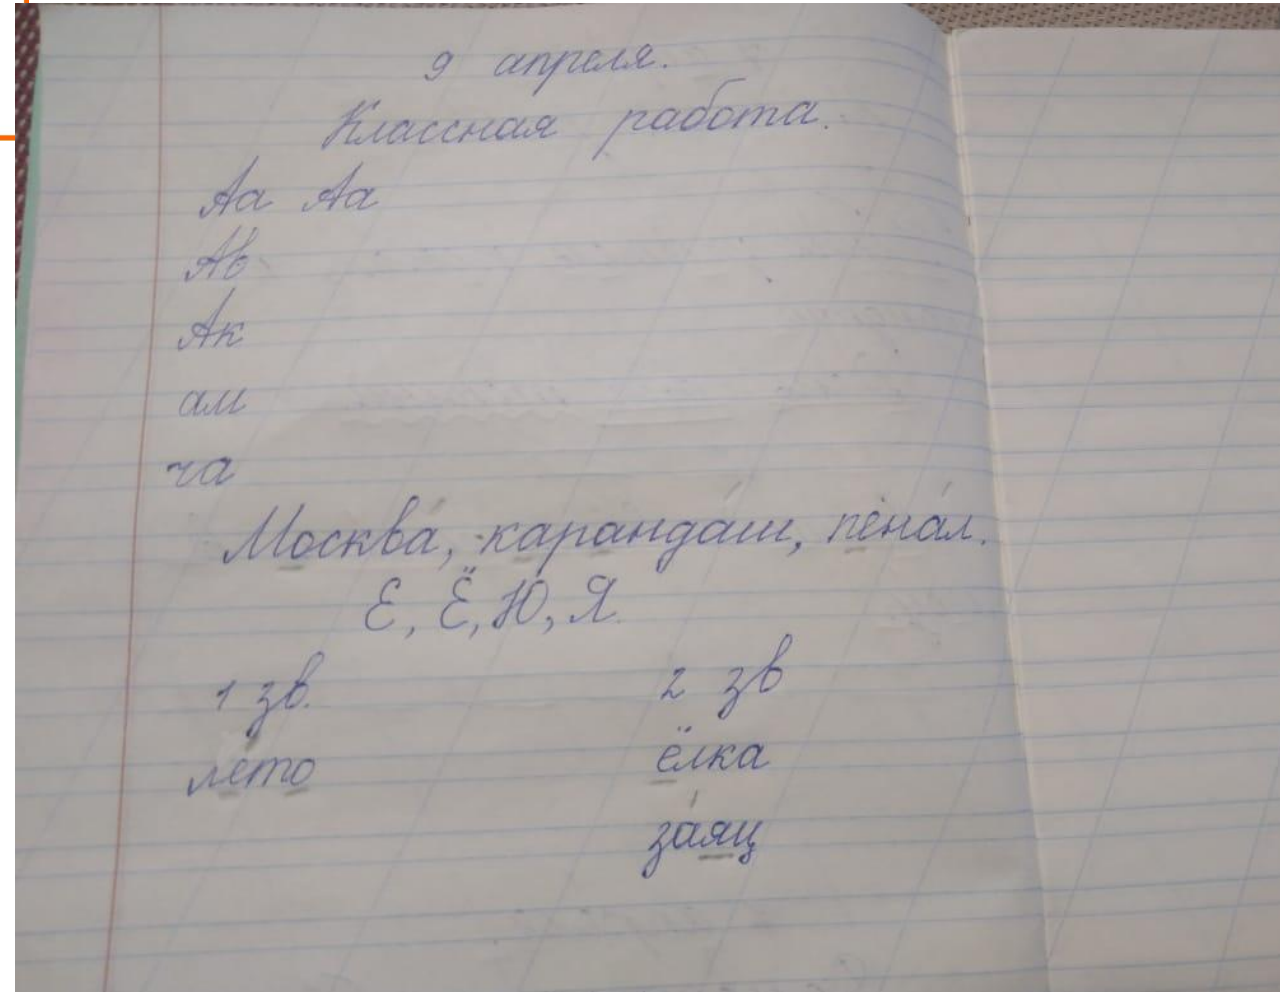 9 апреля.
Классная работа.
Аа Аа
Ав
Ак
ам
ча
Москва́, каранда́ш, пена́л.
Е, Ё, Ю, Я.
1 зв. 2 зв
ле́то ёлка
за́яц